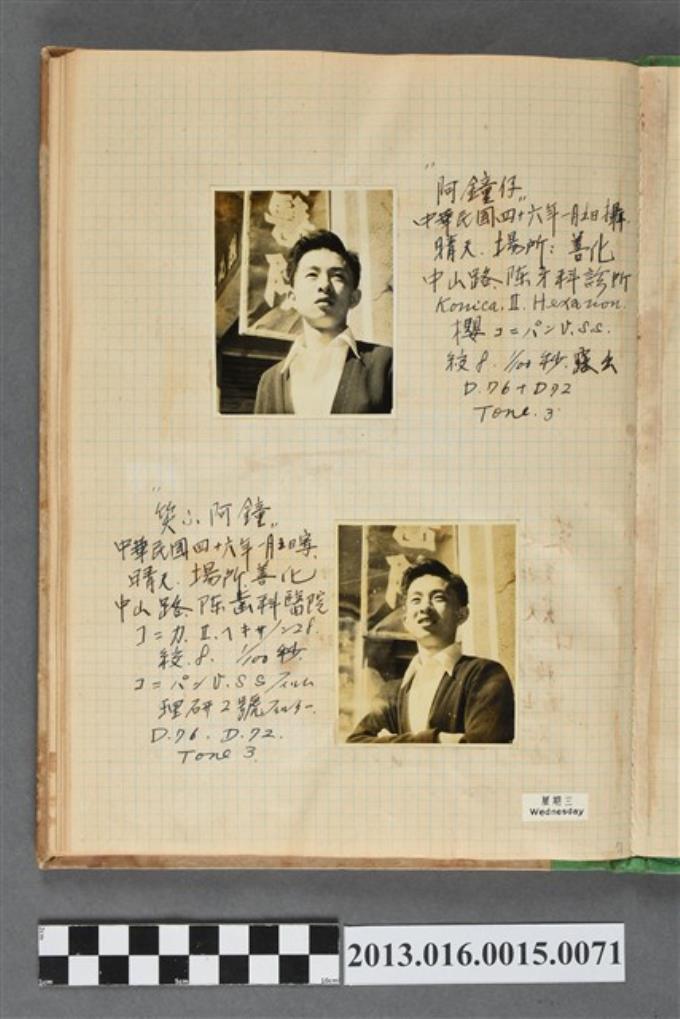 "阿鐘仔"
中華民國四十六年一月五日攝
晴天．場所：善化
中山路、陈牙科診所
Konica. II. Hexanon.
櫻コニパンU.S.S.
絞8. 1/100秒．露出
D.76+D72
Tone.3
"笑ふ阿鐘"
中華民國四十六年一月五日寫
晴天．場所．善化
中山路．陈歯科醫院
コニカ.II.ヘキサノン2.8.
絞.8. 1/100秒.
コニパンU.S Sフィルム
理研2號フィルター.
D.76. D.72.
Tone 3.
星期三
Wednesday
2013.016.0015.0071